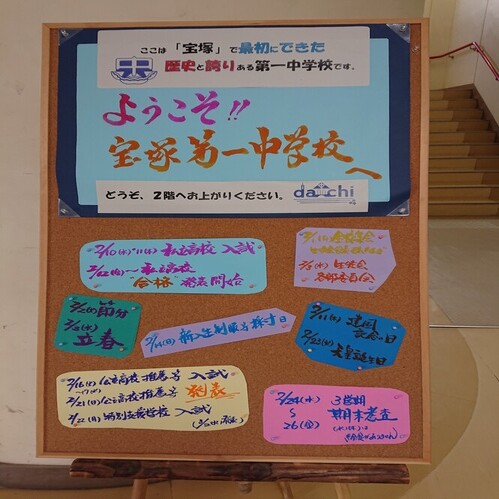 ここは「宝塚」で最初にできた
歴史と誇りある第一中学校です。
ようこそ!!
宝塚第一中学校
へ
どうぞ、2階へお上がりください。
daiichi
2/10(水)・11(木) 私立高校 入試
2/12(金)〜 私立高校
"合格" 発表開始
2/3(水) 生徒会
各部委員会
2/2の節分
2/3(水)
立春
2/14(日) 新入生制服採寸日
2/11(木) 建国
記念の日
2/23(火)
天皇誕生日
2/16(火) 公立高校推薦等 入試
〜17(水)
2/21(日) 公立高校推薦等 発表
2/22(月) 特別支援学校 入試
2/24(水) 3学期
26(金) 期末考査